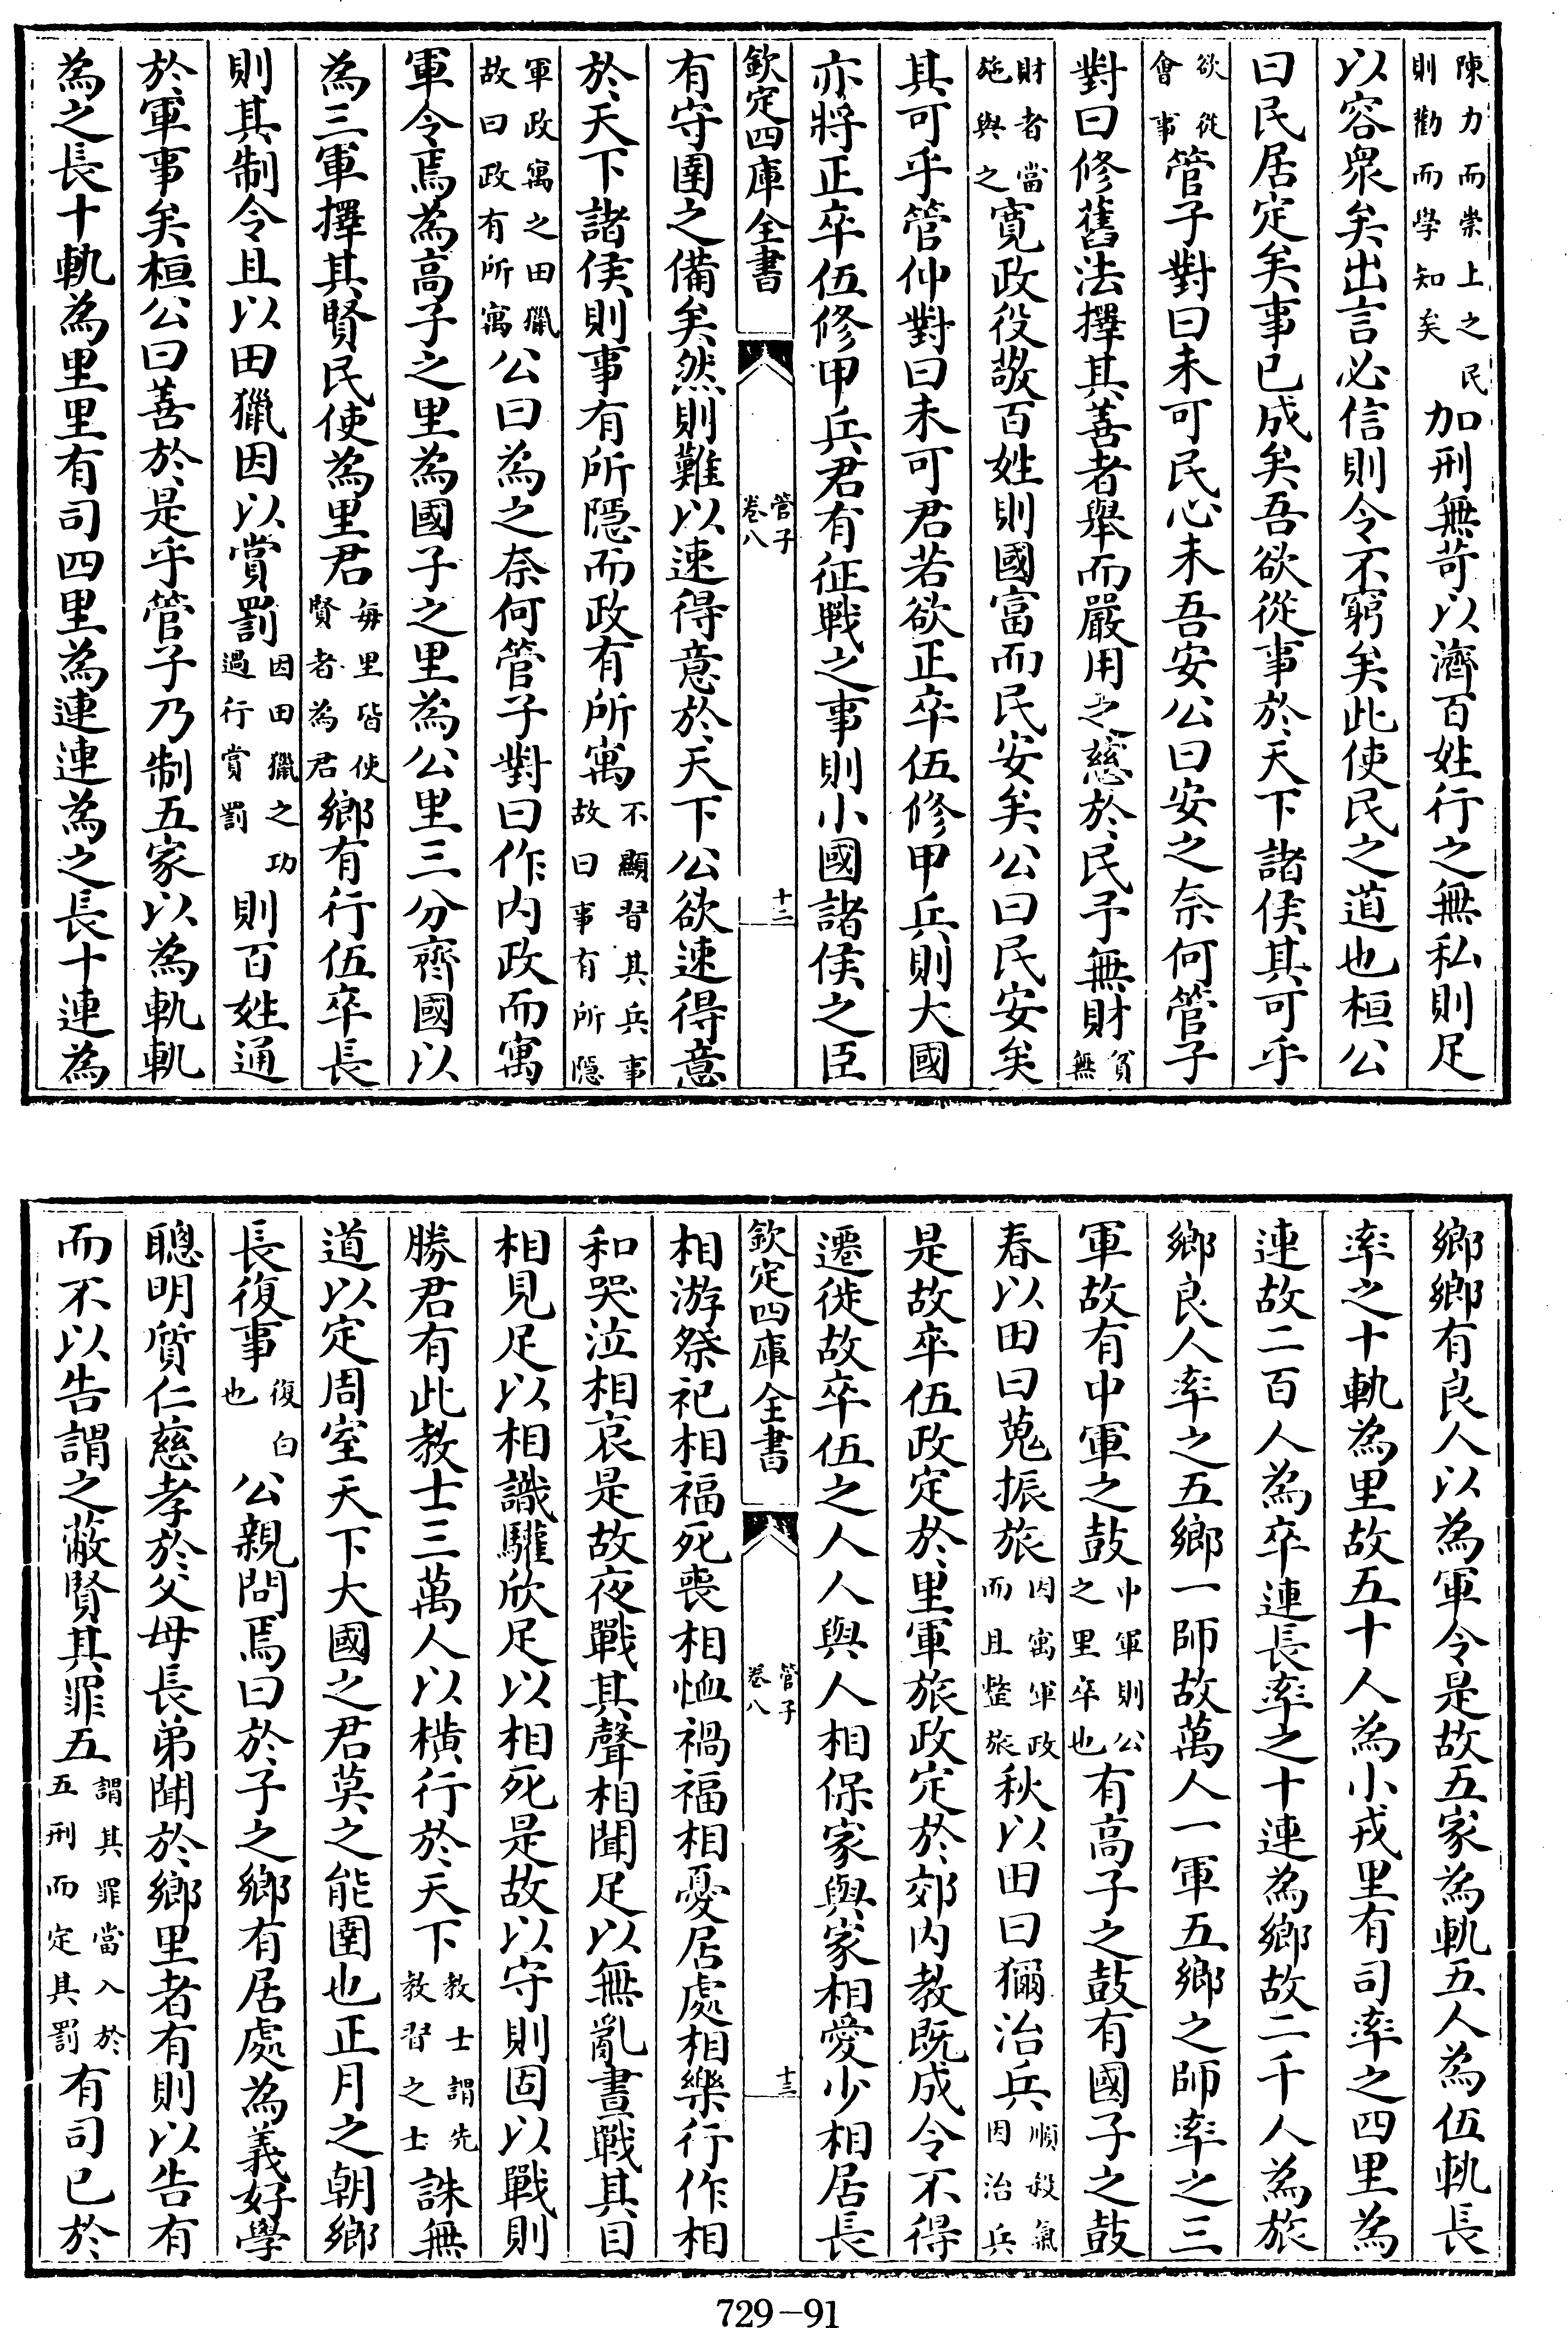 陳力而崇上之民則勸而學知矣加刑無苛以濟百姓行之無私則足
以容衆矣出言必信則令不窮矣此使民之道也桓公
曰民居定矣事已成矣吾欲從事於天下諸侯其可乎
欲從會事管子對曰未可民心未吾安公曰安之奈何管子
對曰修舊法擇其善者舉而嚴用之慈於民予無財貧無
財者當施與之寛政役敬百姓則國富而民安矣公曰民安矣
其可乎管仲對曰未可君若欲正卒伍修甲兵則大國
亦將正卒伍修甲兵君有征戰之事則小國諸侯之臣
欽定四庫全書 管子 卷八 十二
有守圉之備矣然則難以速得意於天下公欲速得意
於天下諸侯則事有所隱而政有所寓不顯習其兵事故曰事有所隱
軍政寓之田獵故曰政有所寓公曰為之奈何管子對曰作內政而寓
軍令焉為高子之里為國子之里為公里三分齊國以
為三軍擇其賢民使為里君每里皆使賢者為君鄉有行伍卒長
則其制令且以田獵因以賞罰因田獵之功過行賞罰則百姓通
於軍事矣桓公曰善於是乎管子乃制五家以為軌軌
為之長十軌為里里有司四里為連連為之長十連為
鄉鄉有良人以為軍令是故五家為軌五人為伍軌長
率之十軌為里故五十人為小戎里有司率之四里為
連故二百人為卒連長率之十連為鄉故二千人為旅
鄉良人率之五鄉一師故萬人一軍五鄉之師率之三
軍故有中軍之鼓中軍則公之里卒也有高子之鼓有國子之鼓
春以田曰蒐振旅因寓軍政而且整旅秋以田曰獮治兵順殺氣因治兵
是故卒伍政定於里軍旅政定於郊內教既成令不得
遷徙故卒伍之人人與人相保家與家相愛少相居長
欽定四庫全書 管子 卷八 十三
相游祭祀相福死喪相恤禍福相憂居處相樂行作相
和哭泣相哀是故夜戰其聲相聞足以無亂晝戰其目
相見足以相識驩欣足以相死是故以守則固以戰則
勝君有此教士三萬人以橫行於天下教士謂先教習之士誅無
道以定周室天下大國之君莫之能圉也正月之朝鄉
長復事復白也公親問焉曰於子之鄉有居處為義好學
聰明質仁慈孝於父母長弟聞於鄉里者有則以告有
而不以告謂之蔽賢其罪五謂其罪當入於五刑而定其罰有司已於
729-91